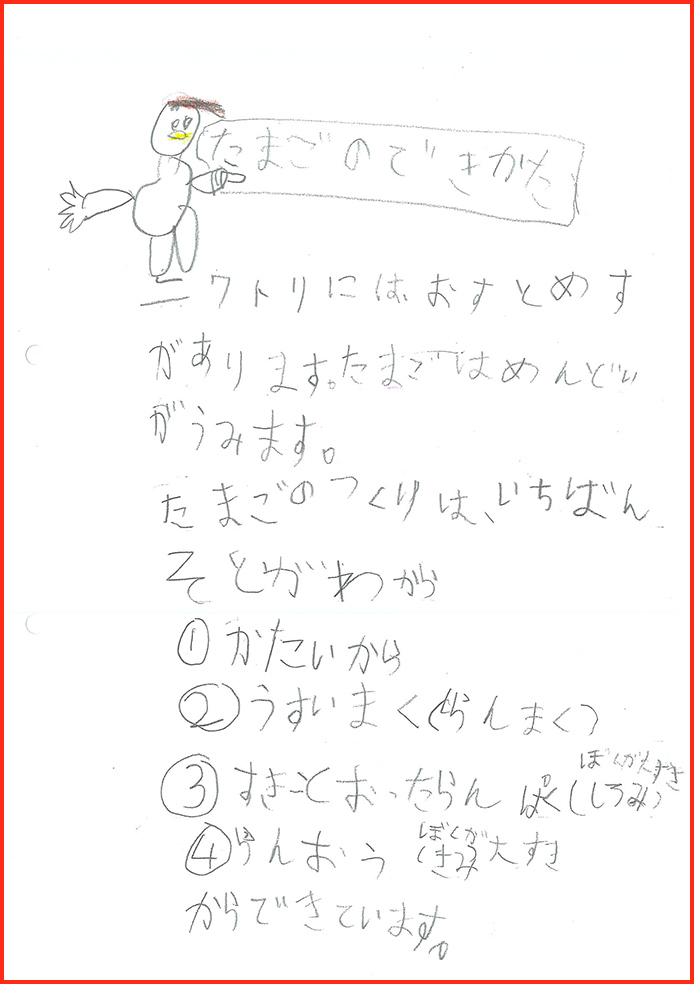 たまごのできかた
ニワトリには、おすとめす
があります。たまごはめんどり
がうみます。
たまごのつくりは、いちばん
そとがわから
①かたいから
②うすいまく(らんまく)
③すきとおったらんぱく(しろみ)ぼくが大すき
④らんおう(きみ)ぼくが大すき
からできています。